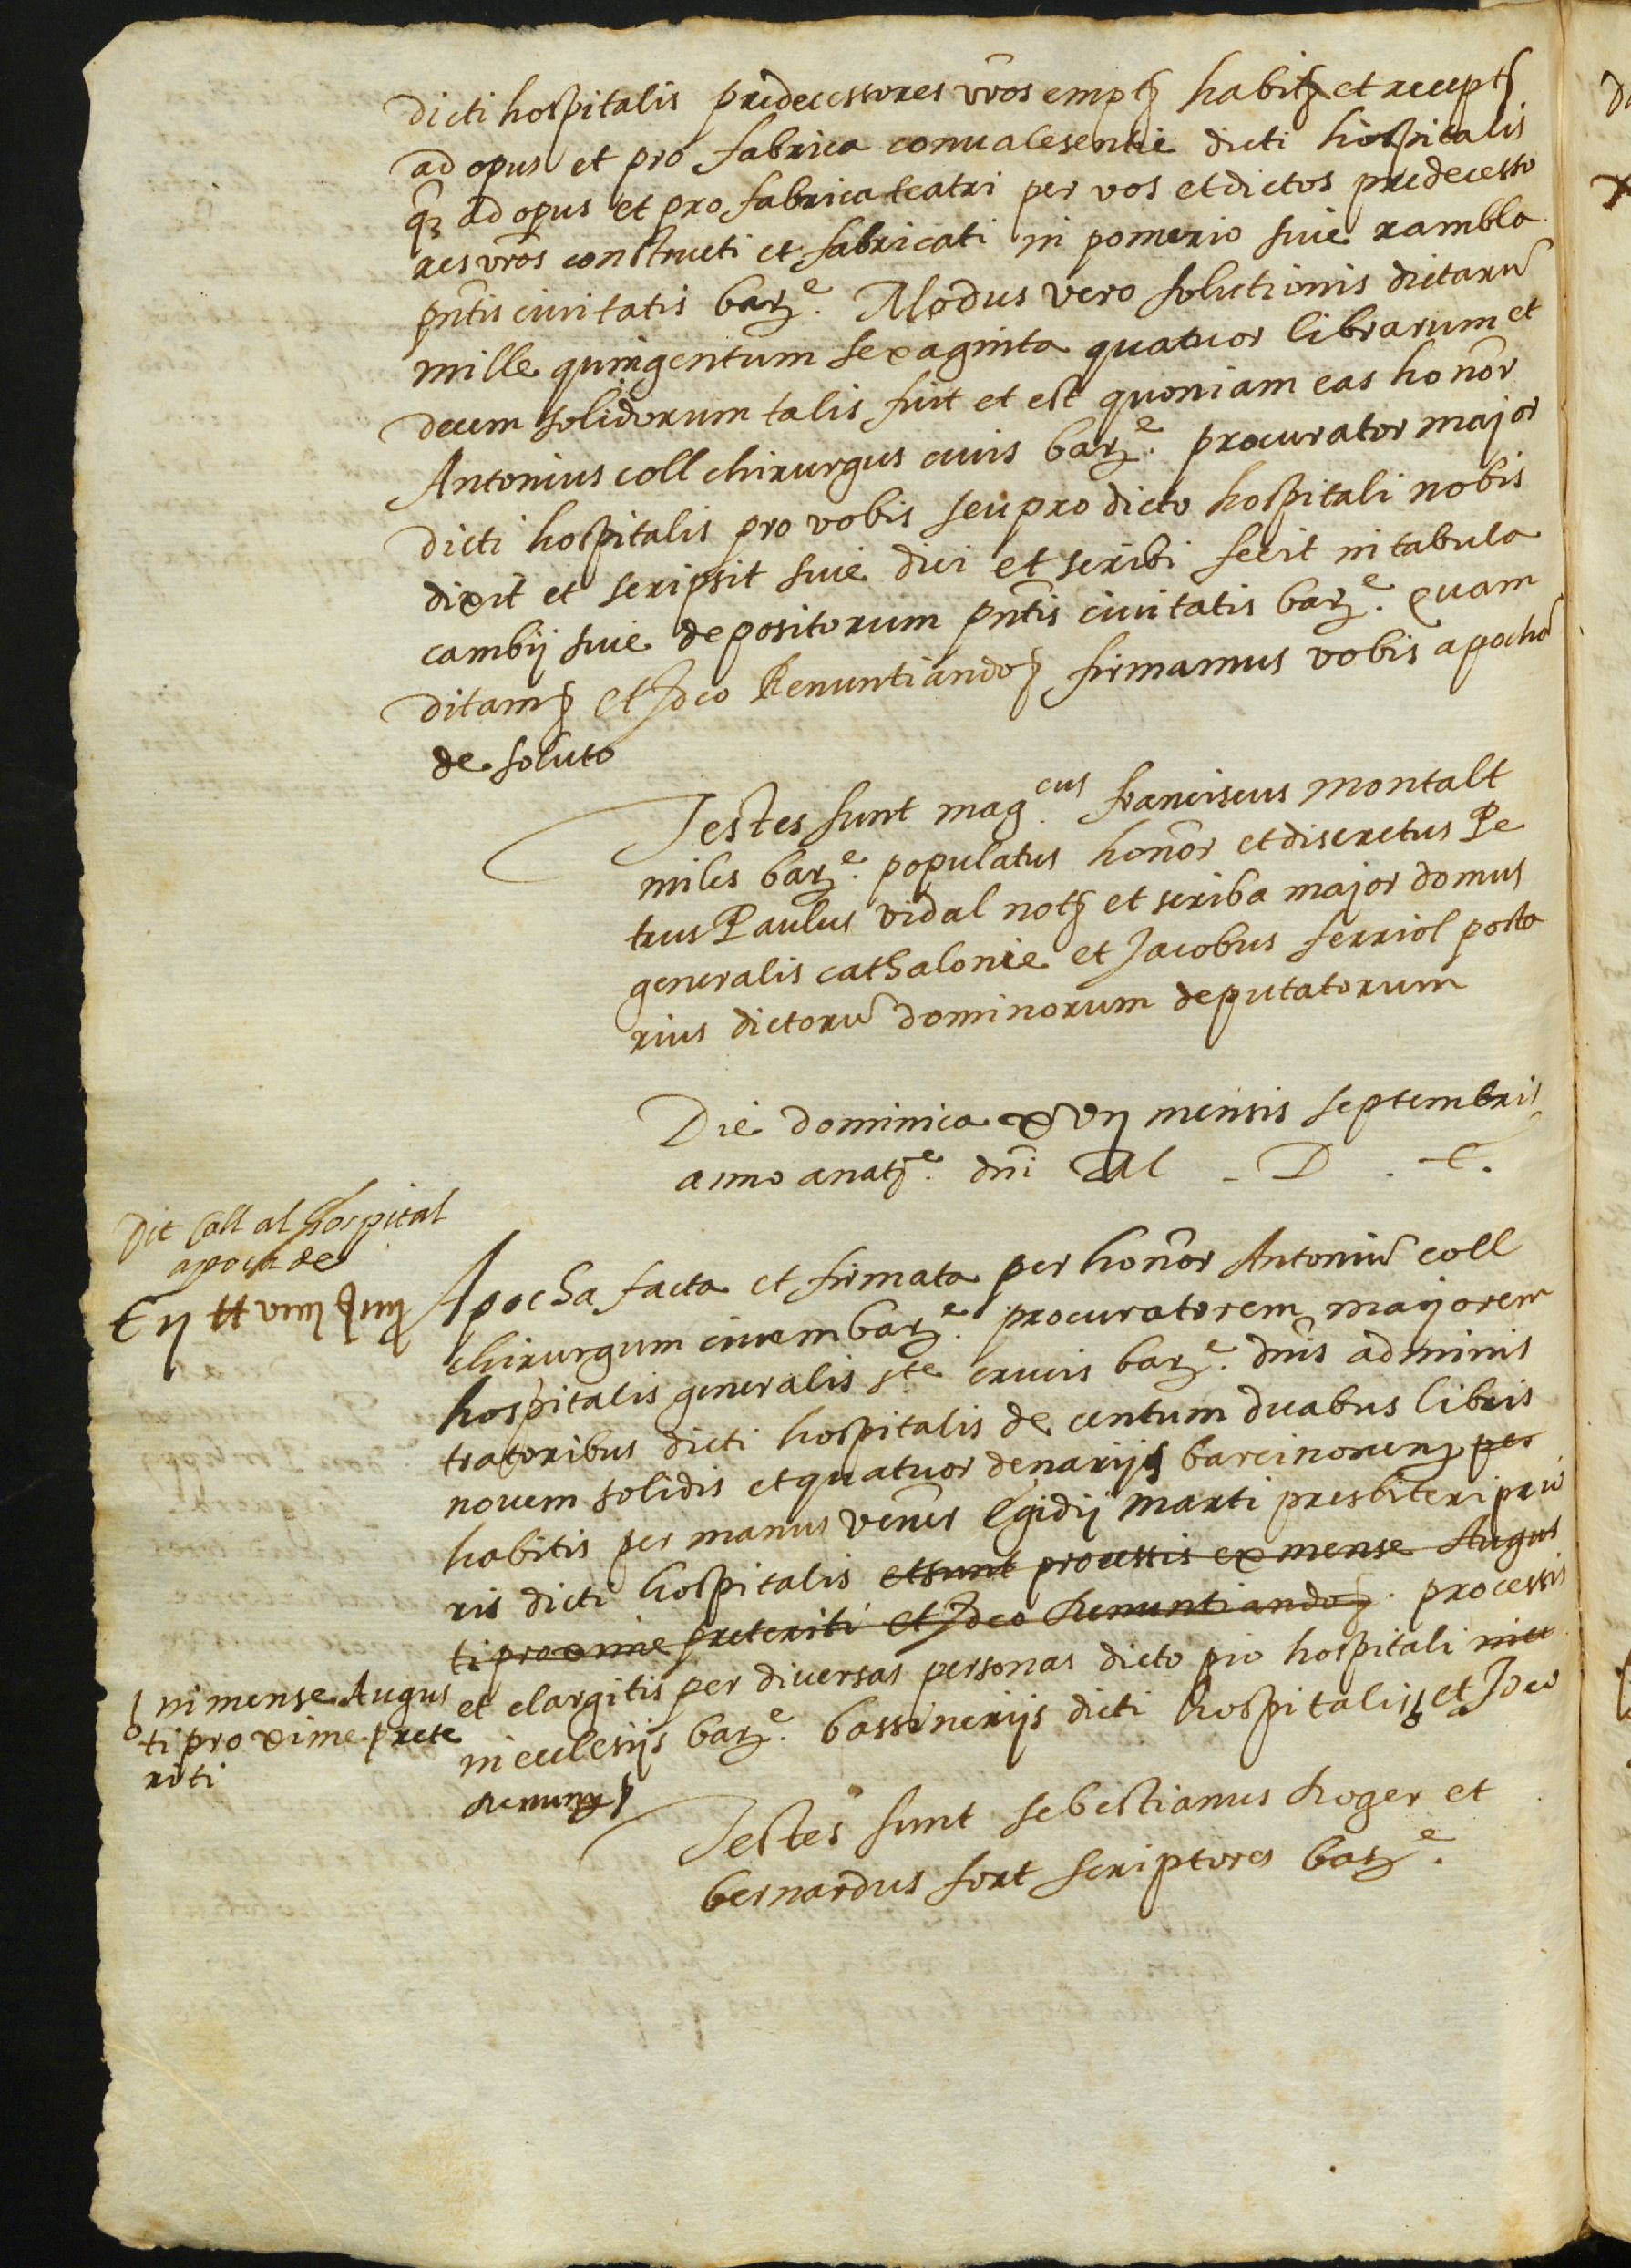 dicti hospitalis predecessores vr̃os empt҃ habit҃ et recept҃
ad opus et pro fabrica conualesentie dicti hospitalis
q̃ȝ ad opus et pro fabrica teatri per vos et dictos predecesso
res vr̃os constructi et fabricati in pomerio siue rambla
pñtis ciuitatis barᵉ. Modus vero solutionis dictarũ
mille quingentum sexaginta quatuor librarum et
decem solidorum talis fuit et est quoniam eas honor̃
Antonius coll chirurgus ciuis barᵉ. procurator major
dicti hospitalis pro vobis seu pro dicto hospitali nobis
dixit et scripsit siue dici et scribi fecit in tabula
cambij siue depositorum pñtis ciuitatis barᵉ. quam
ditam҃ et Ideo Renuntiando҃ firmamus vobis apochã
de soluto
Testes sunt mag.cus franciscus montalt
miles barᵉ. populatus honor̃ et discretus Pe
trus Paulus vidal not҃ et scriba major domus
generalis cathalonie et Jacobus ferriol porta
rius dictorũ dominorum deputatorum
Die dominica xvij mensis septembris
anno a natᵉ. dñi M . D . C.
Dit Coll al hospital
apoca de
Cij ₶ viiij ẞ iiij
Apocha facta et firmata per honor̃ Antoniũ coll
chirurgum ciuem barᵉ. procuratorem majorem
hospitalis generalis ste crucis barᵉ. dñis adminis
tratoribus dicti hospitalis de centum duabus libris
nouem solidis et quatuor denarijs barcinonen҃ per
habitis per manus vener̃ Egidij marti presbiteri prio
ris dicti hospitalis et sunt processis ex mense Augus
ti proxime preteriti et Ideo Renuntiando҃. processis
et elargitis per diuersas personas dicto pio hospitali in ec
in mense Augus
ti proxime prete
riti
in ecclesijs barᵉ. bassinerijs dicti hospitalis et Ideo
Renun҃
Testes sunt sebestianus Roger et
bernardus fort scriptores barᵉ.